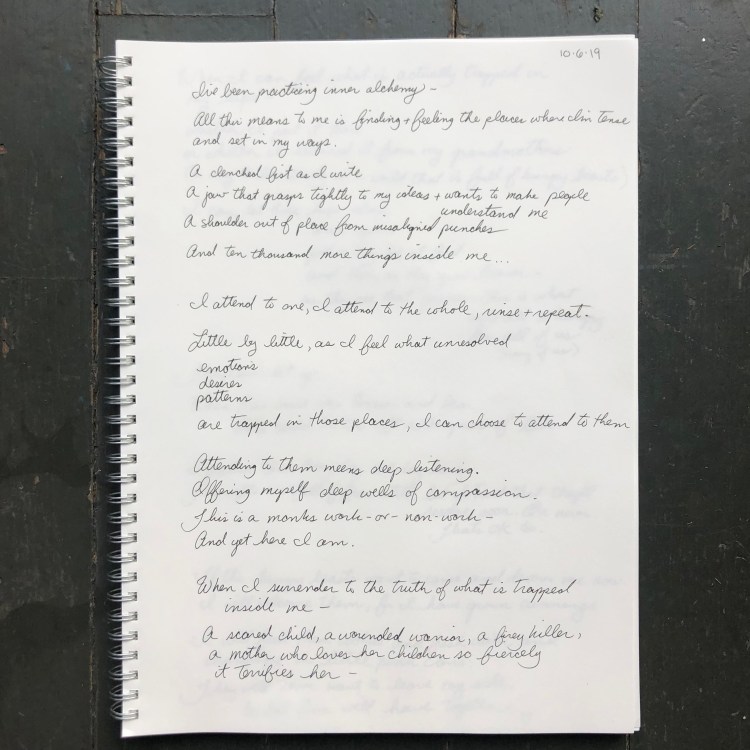 10·6·19
I've been practicing inner alchemy –
All this means to me is finding + feeling the places where I'm tense
and set in my ways.
A clenched fist as I write
A jaw that grasps tightly to my ideas + wants to make people
understand me
A shoulder out of place from misaligned punches
And ten thousand more things inside me...
I attend to one, I attend to the whole, rinse + repeat.
Little by little, as I feel what unresolved
emotions
desires
patterns
are trapped in those places, I can choose to attend to them
Attending to them means deep listening.
Offering myself deep wells of compassion.
This is a monks work – or – non-work –
And yet here I am.
When I surrender to the truth of what is trapped
inside me –
A scared child, a wounded warrior, a firey killer,
a mother who loves her children so fiercely
it terrifies her –